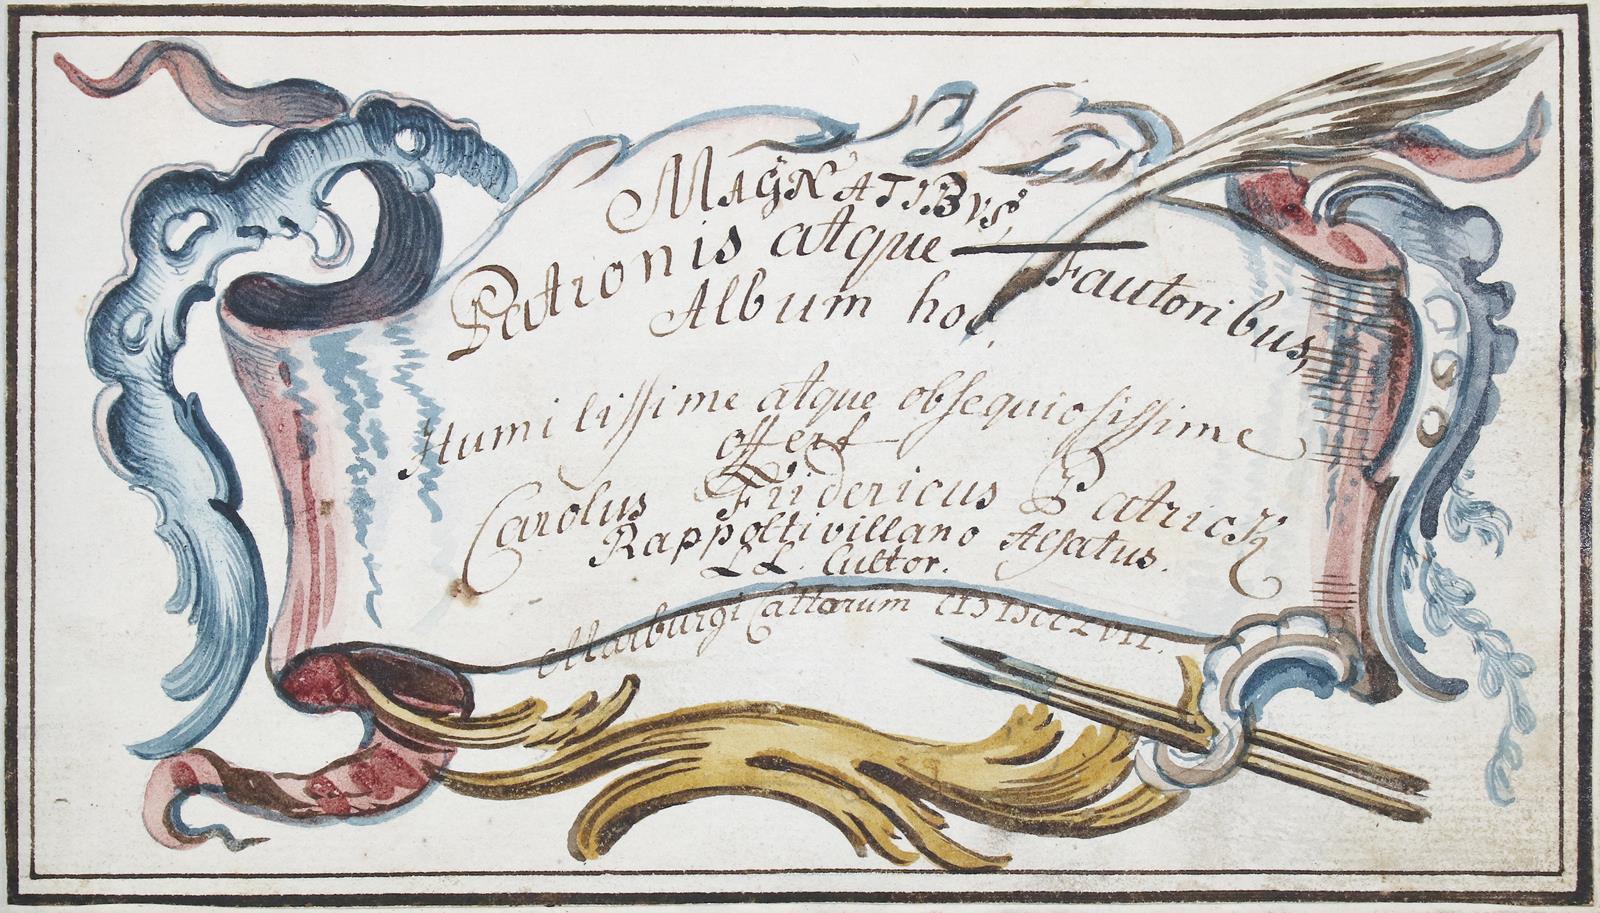 MAGNATIBVS,
Patronis atque Fautoribus,
Album hoc,
Humilissime atque obsequiosissime
offert
Carolus Fridericus Patrick
Rappoltivillano Alsatus.
LL. Cultor.
Marburgi Cattorum CIƆIƆCCLVII.